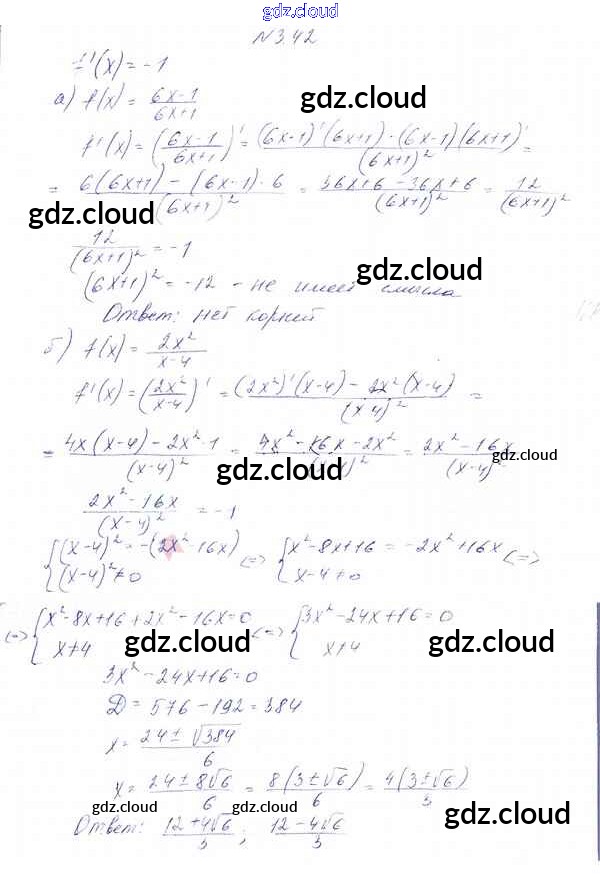 gdz.cloud
N 3.42
f'(x) = -1
а) f(x) = (6x-1)/(6x+1)
gdz.cloud
f'(x) = ((6x-1)/(6x+1))' = ((6x-1)'(6x+1) - (6x-1)(6x+1)')/(6x+1)² =
= (6(6x+1) - (6x-1)·6)/(6x+1)² = (36x+6-36x+6)/(6x+1)² = 12/(6x+1)²
gdz.cloud
12/(6x+1)² = -1
gdz.cloud
(6x+1)² = -12 - не имеет смысла
Ответ: нет корней
б) f(x) = 2x²/(x-4)
f'(x) = (2x²/(x-4))' = ((2x²)'(x-4) - 2x²(x-4))/(x-4)² =
= (4x(x-4) - 2x²·1)/(x-4)² = (4x²-16x-2x²)/(x-4)² = (2x²-16x)/(x-4)²
gdz.cloud gdz.cloud
(2x²-16x)/(x-4)² = -1
{(x-4)² = -(2x²-16x) (=) {x²-8x+16 = -2x²+16x (=>
(x-4)² ≠ 0 x-4 ≠ 0
(=> {x²-8x+16+2x²-16x=0 (=> {3x²-24x+16=0
x≠4 gdz.cloud x≠4 gdz.cloud
3x²-24x+16=0
D = 576-192=384
x = (24 ± √384)/6
x = (24±8√6)/6 = 8(3±√6)/6 = 4(3±√6)/3
gdz.cloud gdz.cloud gdz.cloud
Ответ: (12+4√6)/3 ; (12-4√6)/3